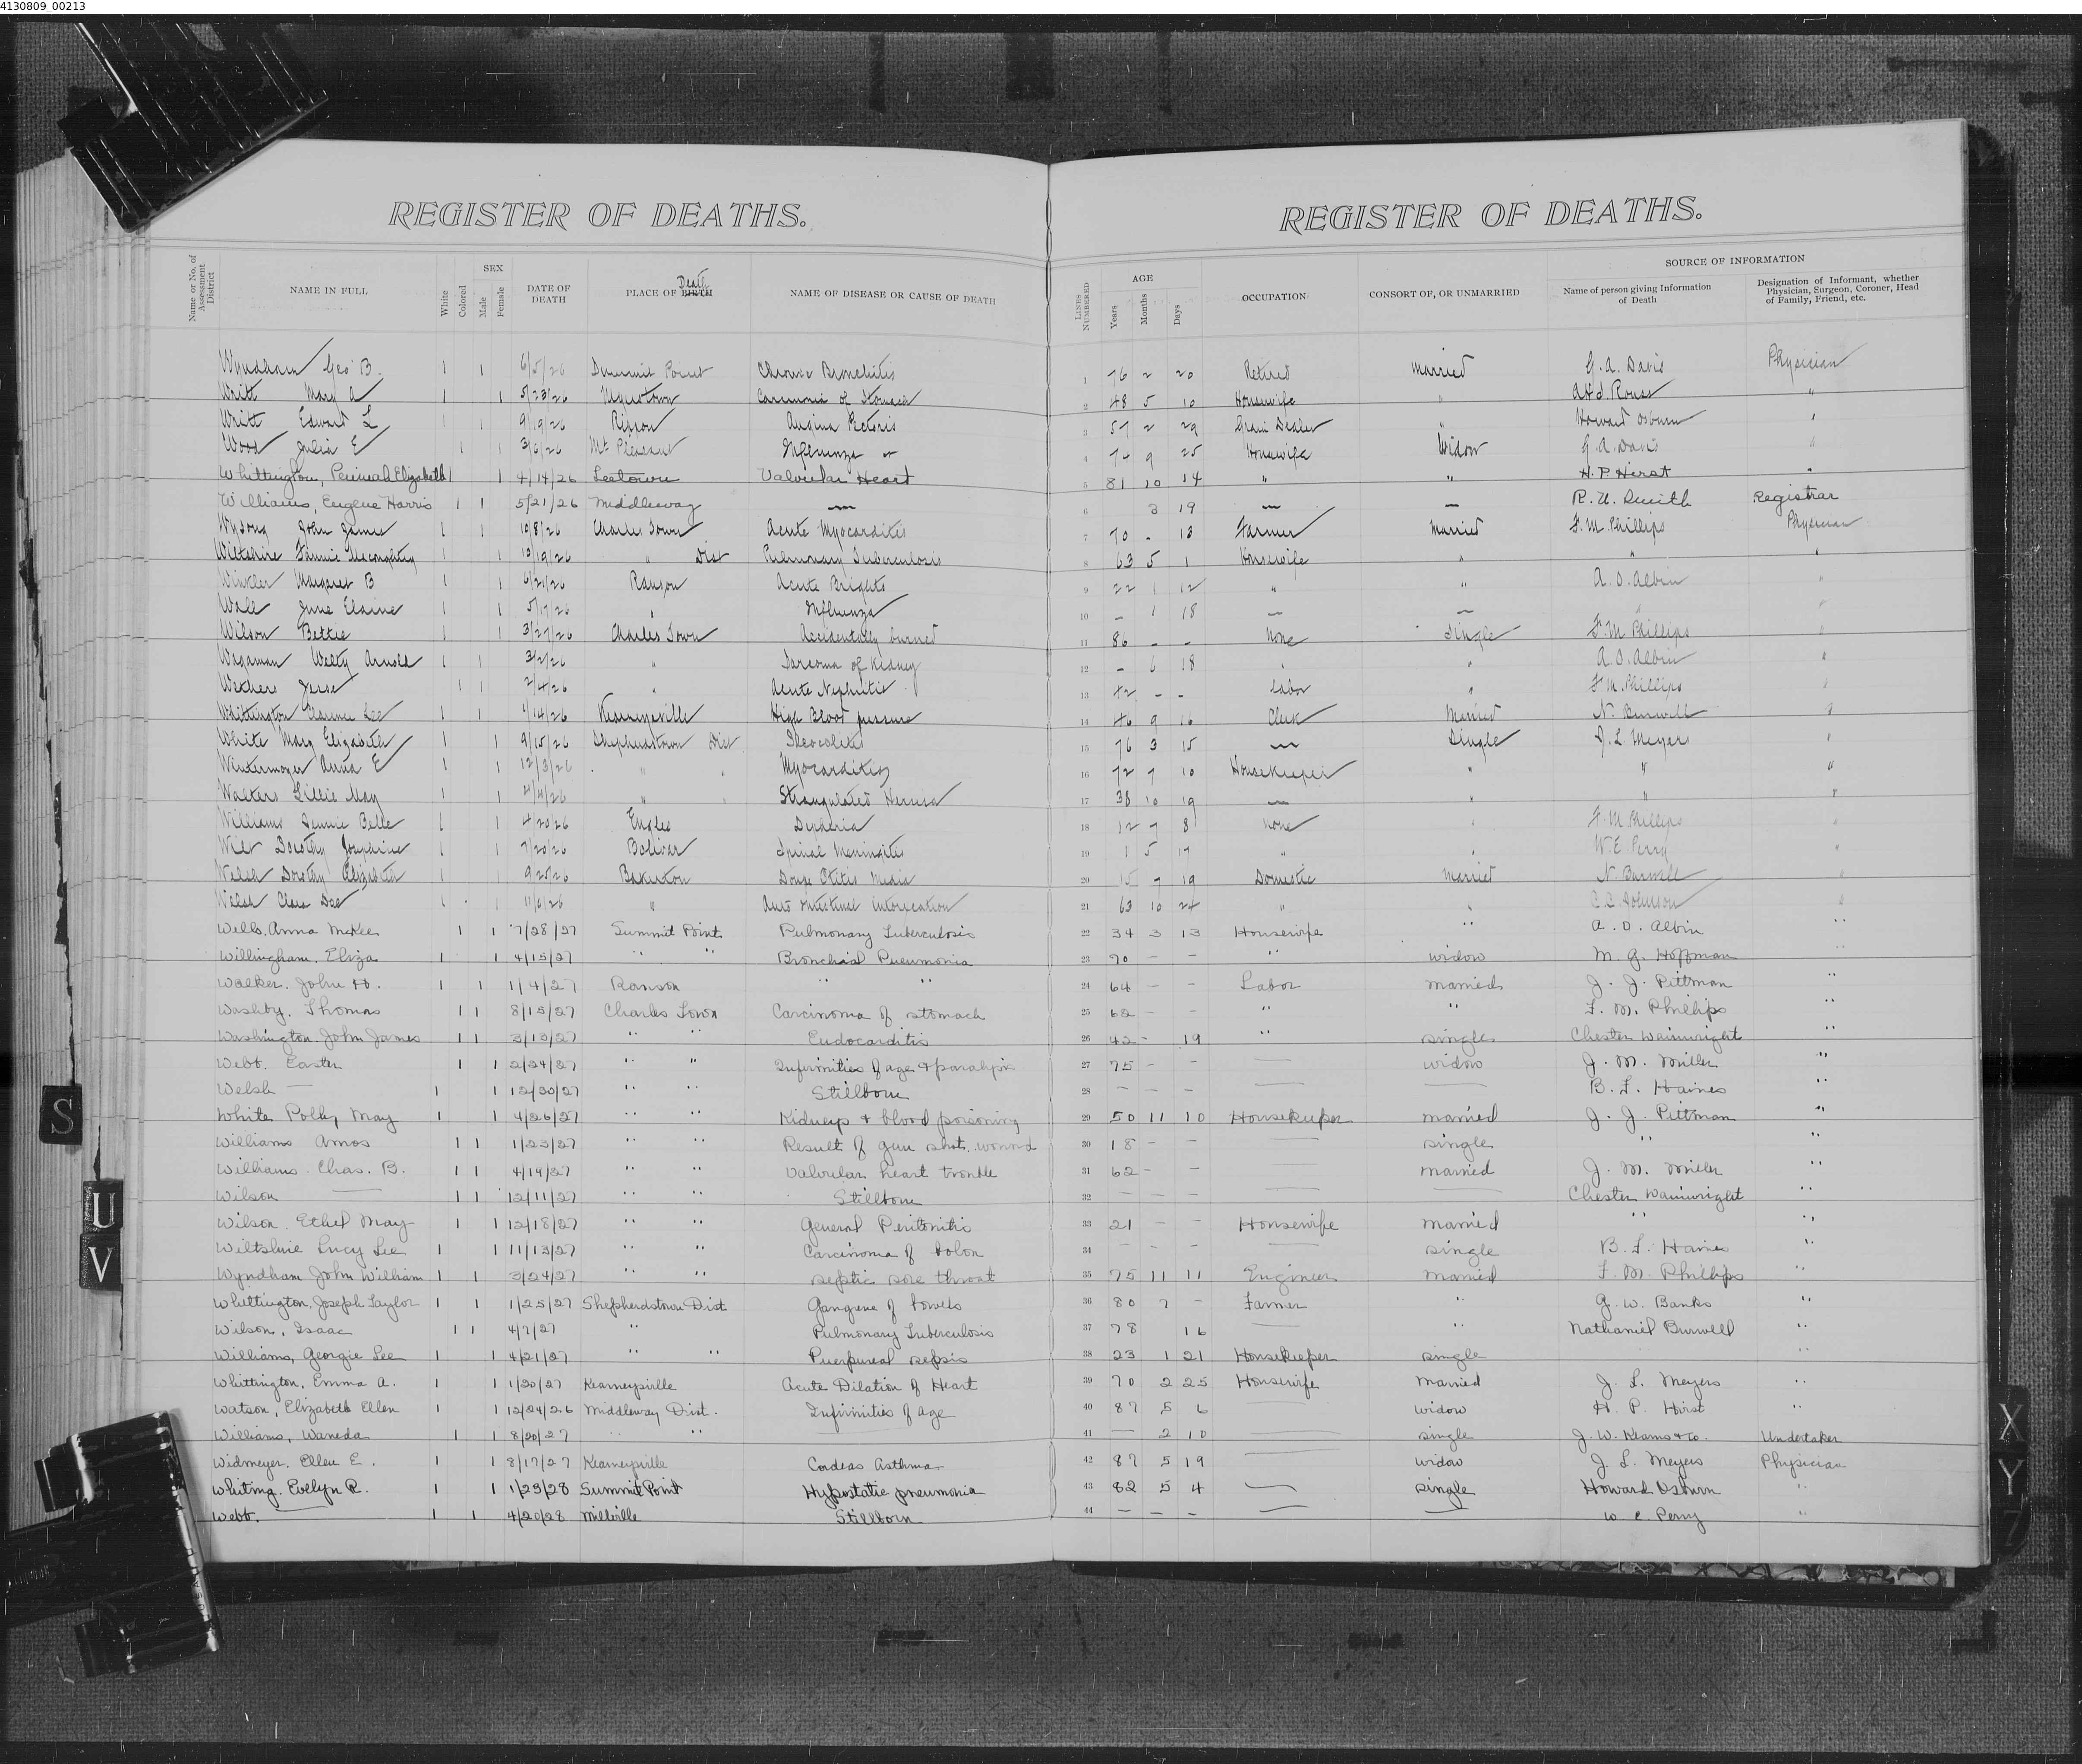 4130809_00213
REGISTER OF DEATHS.
Name or No. of Assessment District
NAME IN FULL
White
Colored
SEX
Male
Female
DATE OF DEATH
PLACE OF BIRTH Death
NAME OF DISEASE OR CAUSE OF DEATH
REGISTER OF DEATHS.
LINES NUMBERED
AGE
Years
Months
Days
OCCUPATION
CONSORT OF, OR UNMARRIED
SOURCE OF INFORMATION
Name of person giving Information of Death
Designation of Informant, whether Physician, Surgeon, Coroner, Head of Family, Friend, etc.
Wyndham Geo B. 1 1 6/5/26 Summit Point Chronic Bronchitis 1 76 2 20 Retired Married G. A. Davis Physician
Writt Mary A 1 1 5/23/26 Carcinoma of Stomach 2 48 5 10 Housewife " "
Writt Edward L 1 1 9/19/26 Rippon Angina Pectoris 3 57 2 29 Grain Dealer " Howard Osburn "
Wood Julia E 1 1 3/6/26 Mt Pleasant Influenza 4 74 9 25 Housewife Widow G. A. Davis "
Whittington, Elizabeth 1 1 4/14/26 Leetown Valvular Heart 5 81 10 14 " " H. P. Hirst "
Williams, Eugene Harris 1 1 5/21/26 Middleway — 6 3 19 — — R. U. Smith Registrar
Wysong John James 1 1 10/8/26 Charles Town Acute Myocarditis 7 70 - 13 Farmer Married F. M. Phillips Physician
Wiltshire Fannie 1 1 10/19/26 " Dist Pulmonary Tuberculosis 8 63 5 1 Housewife " " "
Winkler Margaret B 1 1 6/21/26 Ranson Acute Brights 9 22 1 12 " " A. O. Albin "
Wall June Elaine 1 1 5/17/26 " Influenza 10 - 1 18 — — " "
Wilson Bettie 1 1 3/27/26 Charles Town Accidentally burned 11 86 - - None Single F. M. Phillips "
Wagaman Welty Arnold 1 1 3/2/26 " Sarcoma of Kidney 12 - 6 18 " " A. O. Albin "
Wethers Jesse 1 1 2/4/26 " Acute Nephritis 13 42 - - Labor " F. M. Phillips "
Whittington Clarence Lee 1 1 1/14/26 Kearneysville High Blood pressure 14 46 9 16 Clerk Married N. Burwell "
White Mary Elizabeth 1 1 9/15/26 Shepherdstown Dist Ileocolitis 15 76 3 15 — Single J. L. Meyers "
Wintermoyer Anna E 1 1 12/3/26 " " Myocarditis 16 72 7 10 Housekeeper " " "
Walters Lillie May 1 1 4/4/26 " " Strangulated Hernia 17 38 10 19 — " " "
Williams Jennie Belle 1 1 4/20/26 Engles 18 12 7 8 None " F. M. Phillips "
Wilt Dorothy Josephine 1 1 7/20/26 Bolivar Spinal Meningitis 19 1 5 17 " " W. E. Perry "
Welsh Dorothy Elizabeth 1 1 9/25/26 Bakerton Otitis Media 20 15 7 19 Domestic Married N. Burwell "
Welsh Clara Dee 1 1 11/6/26 " Auto intestinal intoxication 21 63 10 24 " " C. C. Johnson "
Wells, Anna McKee 1 1 7/28/27 Summit Point Pulmonary Tuberculosis 22 34 3 13 Housewife " A. O. Albin "
Willingham, Eliza 1 1 4/15/27 " " Bronchial Pneumonia 23 70 - - " widow M. G. Hoffman "
Walker, John H. 1 1 1/4/27 Ranson " " 24 64 - - Labor married J. J. Pittman "
Washby, Thomas 1 1 8/15/27 Charles Town Carcinoma of stomach 25 62 - - " " F. M. Phillips "
Washington, John James 1 1 3/13/27 " " Endocarditis 26 42 - 19 " single Chester Wainwright "
Webb, Easter 1 1 2/24/27 " " Infirmities of age & paralysis 27 75 - - — widow J. M. Miller "
Welsh — 1 1 12/30/27 " " Stillborn 28 - - - — — B. F. Haines "
White Polly May 1 1 4/26/27 " " Kidneys & blood poisoning 29 50 11 10 Housekeeper married J. J. Pittman "
Williams Amos 1 1 1/23/27 " " Result of gun shot wound 30 18 - - — single " "
Williams Chas. B. 1 1 4/14/27 " " Valvular heart trouble 31 62 - - — married J. M. Miller "
Wilson — 1 1 12/11/27 " " Stillborn 32 - - - — — Chester Wainwright "
Wilson Ethel May 1 1 12/18/27 " " General Peritonitis 33 21 - - Housewife married " "
Wiltshire Lucy Lee 1 1 11/13/27 " " Carcinoma of Colon 34 - - - — single B. F. Haines "
Wyndham John William 1 1 3/24/27 " " septic sore throat 35 75 11 11 Engineer married F. M. Phillips "
Whittington, Joseph Taylor 1 1 1/25/27 Shepherdstown Dist Gangrene of bowels 36 80 7 - Farmer " G. W. Banks "
Wilson, Isaac 1 1 4/7/27 " Pulmonary Tuberculosis 37 78 16 — " Nathaniel Burwell "
Williams, Georgie Lee 1 1 4/21/27 " " Puerpureal sepsis 38 23 1 21 Housekeeper single " "
Whittington, Emma A. 1 1 1/30/27 Kearneysville Acute Dilation of Heart 39 70 2 25 Housewife Married J. L. Meyers "
Watson, Elizabeth Ellen 1 1 12/24/26 Middleway Dist. Infirmities of age 40 87 5 6 — widow H. P. Hirst "
Williams, Waneda 1 1 8/20/27 " " — 41 - 2 10 — single J. W. Keams & Co. Undertaker
Widmeyer, Ellen E. 1 1 8/17/27 Kearneysville Cordeas Asthma 42 87 5 19 — widow J. L. Meyers Physician
Whiting, Evelyn R. 1 1 1/23/28 Summit Point Hypostatic pneumonia 43 82 5 4 — single Howard Osburn "
Webb. 1 1 4/20/28 Millville Stillborn 44 - - - — — W. E. Perry "
S
U
V
X
Y
Z